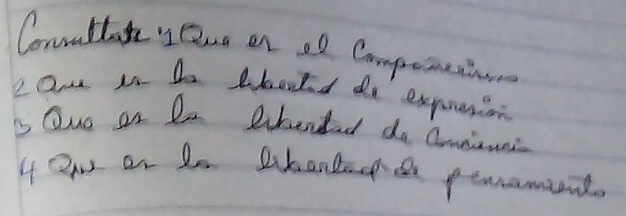 Consultate 1 Que es el Compañerismo
2 Que es la libertad de expresión
3 Que es la libertad de Conciencia
4 Que es la libertad de pensamiento